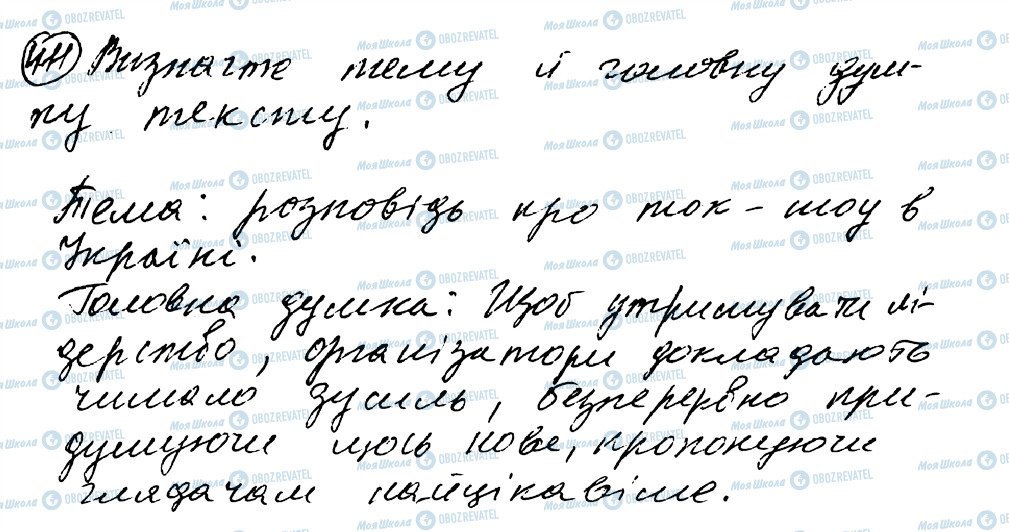 411 Визначте тему й головну дум-
ку тексту.
Тема: розповідь про ток-шоу в
Україні.
Головна думка: Щоб утримувати лі-
дерство, організатори докладають
чимало зусиль, безперервно при-
думуючи щось нове, пропонуючи
глядачам найцікавіше.